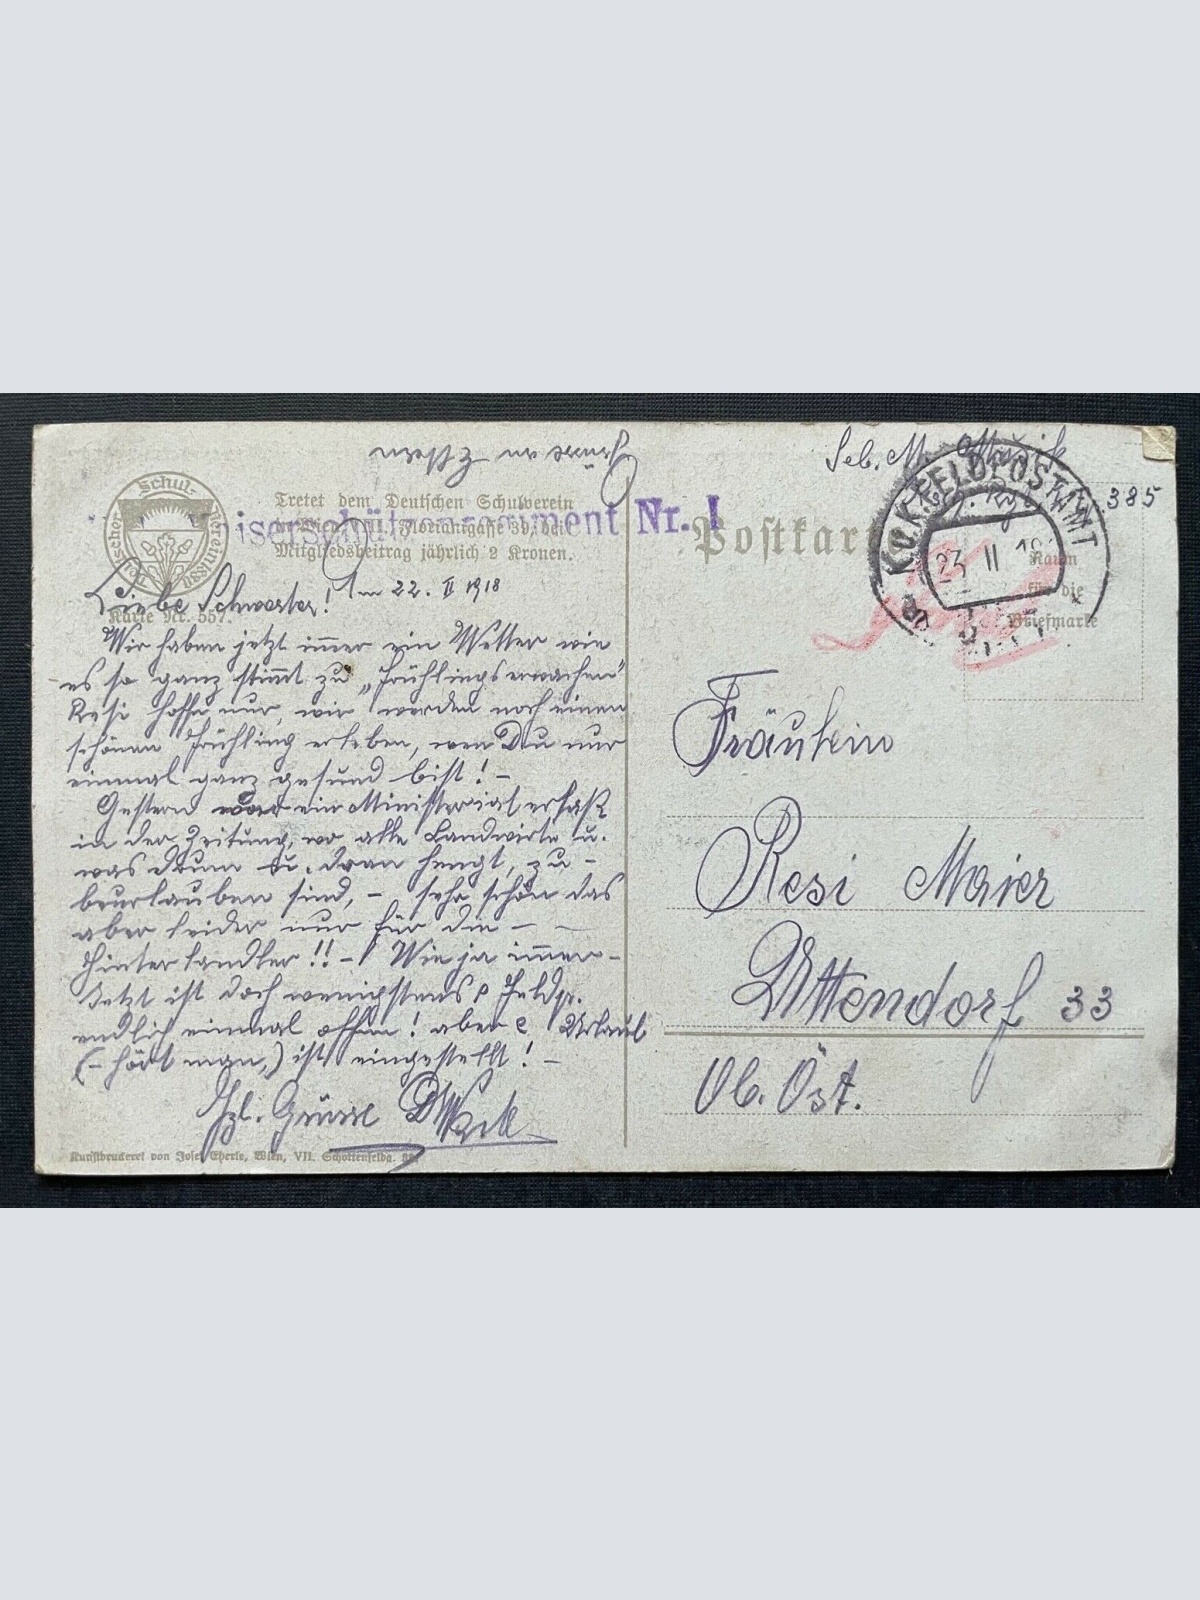 Grüsse an
Seb. M.
385
Deutscher Schul-Verein
Tretet dem Deutschen Schulverein
Wien, VIII. Florianigasse 39, bei.
Mitgliedsbeitrag jährlich 2 Kronen.
Kaiserschützenregiment Nr. I
Postkarte
K.u.K. FELDPOSTAMT
23 II 18
a
Raum
für die
Briefmarke
Karte Nr. 557.
Liebe Schwester! Am 22. II 1918
Wir haben jetzt immer ein Wetter wie
es so ganz stimmt zu „Frühlingserwachen"
Resi hoffe nur, wir werden noch einen
schönen Frühling erleben, wen Du nur
einmal ganz gesund bist! –
Gestern war ein Ministerialerlaß
in der Zeitung, wo alle Landwirte u.
was drum u. dran hengt, zu -
beurlauben sind, – sehr schön das
aber leider nur für die –
Hinterlandler!! – Wie ja immer –
Jetzt ist doch wenigstens Feldp.
endlich einmal offen! aber Urlaub
(– hört man,) ist eingestellt! –
Hzl. Grüsse
Fräulein
Resi Maier
Uttendorf 33
Ob. Öst.
Kunstbruckerei von Josef Eberle, Wien, VII. Schottenfeldg.